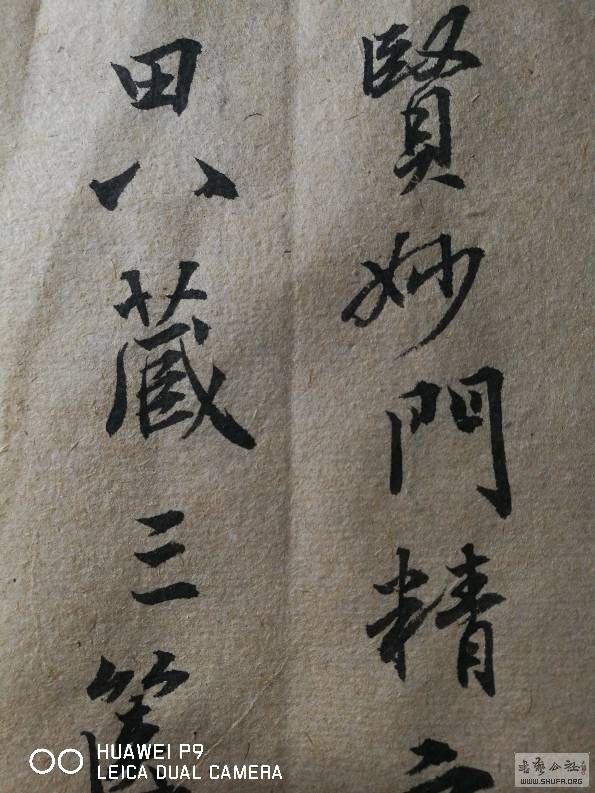 賢妙門精
田八藏三篋
HUAWEI P9
LEICA DUAL CAMERA
書藝公社
WWW.SHUFA.ORG